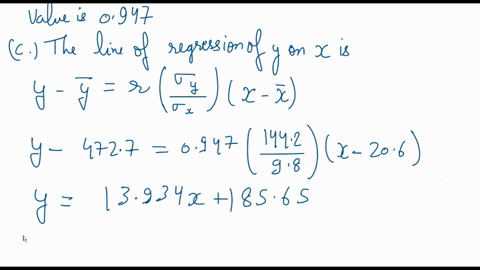 Value is 0.947
(C.) The line of regression of y on x is
y - ȳ = r (σy/σx) (x - x̄)
y - 472.7 = 0.947 (144.2/9.8) (x - 20.6)
y = 13.934x + 185.65